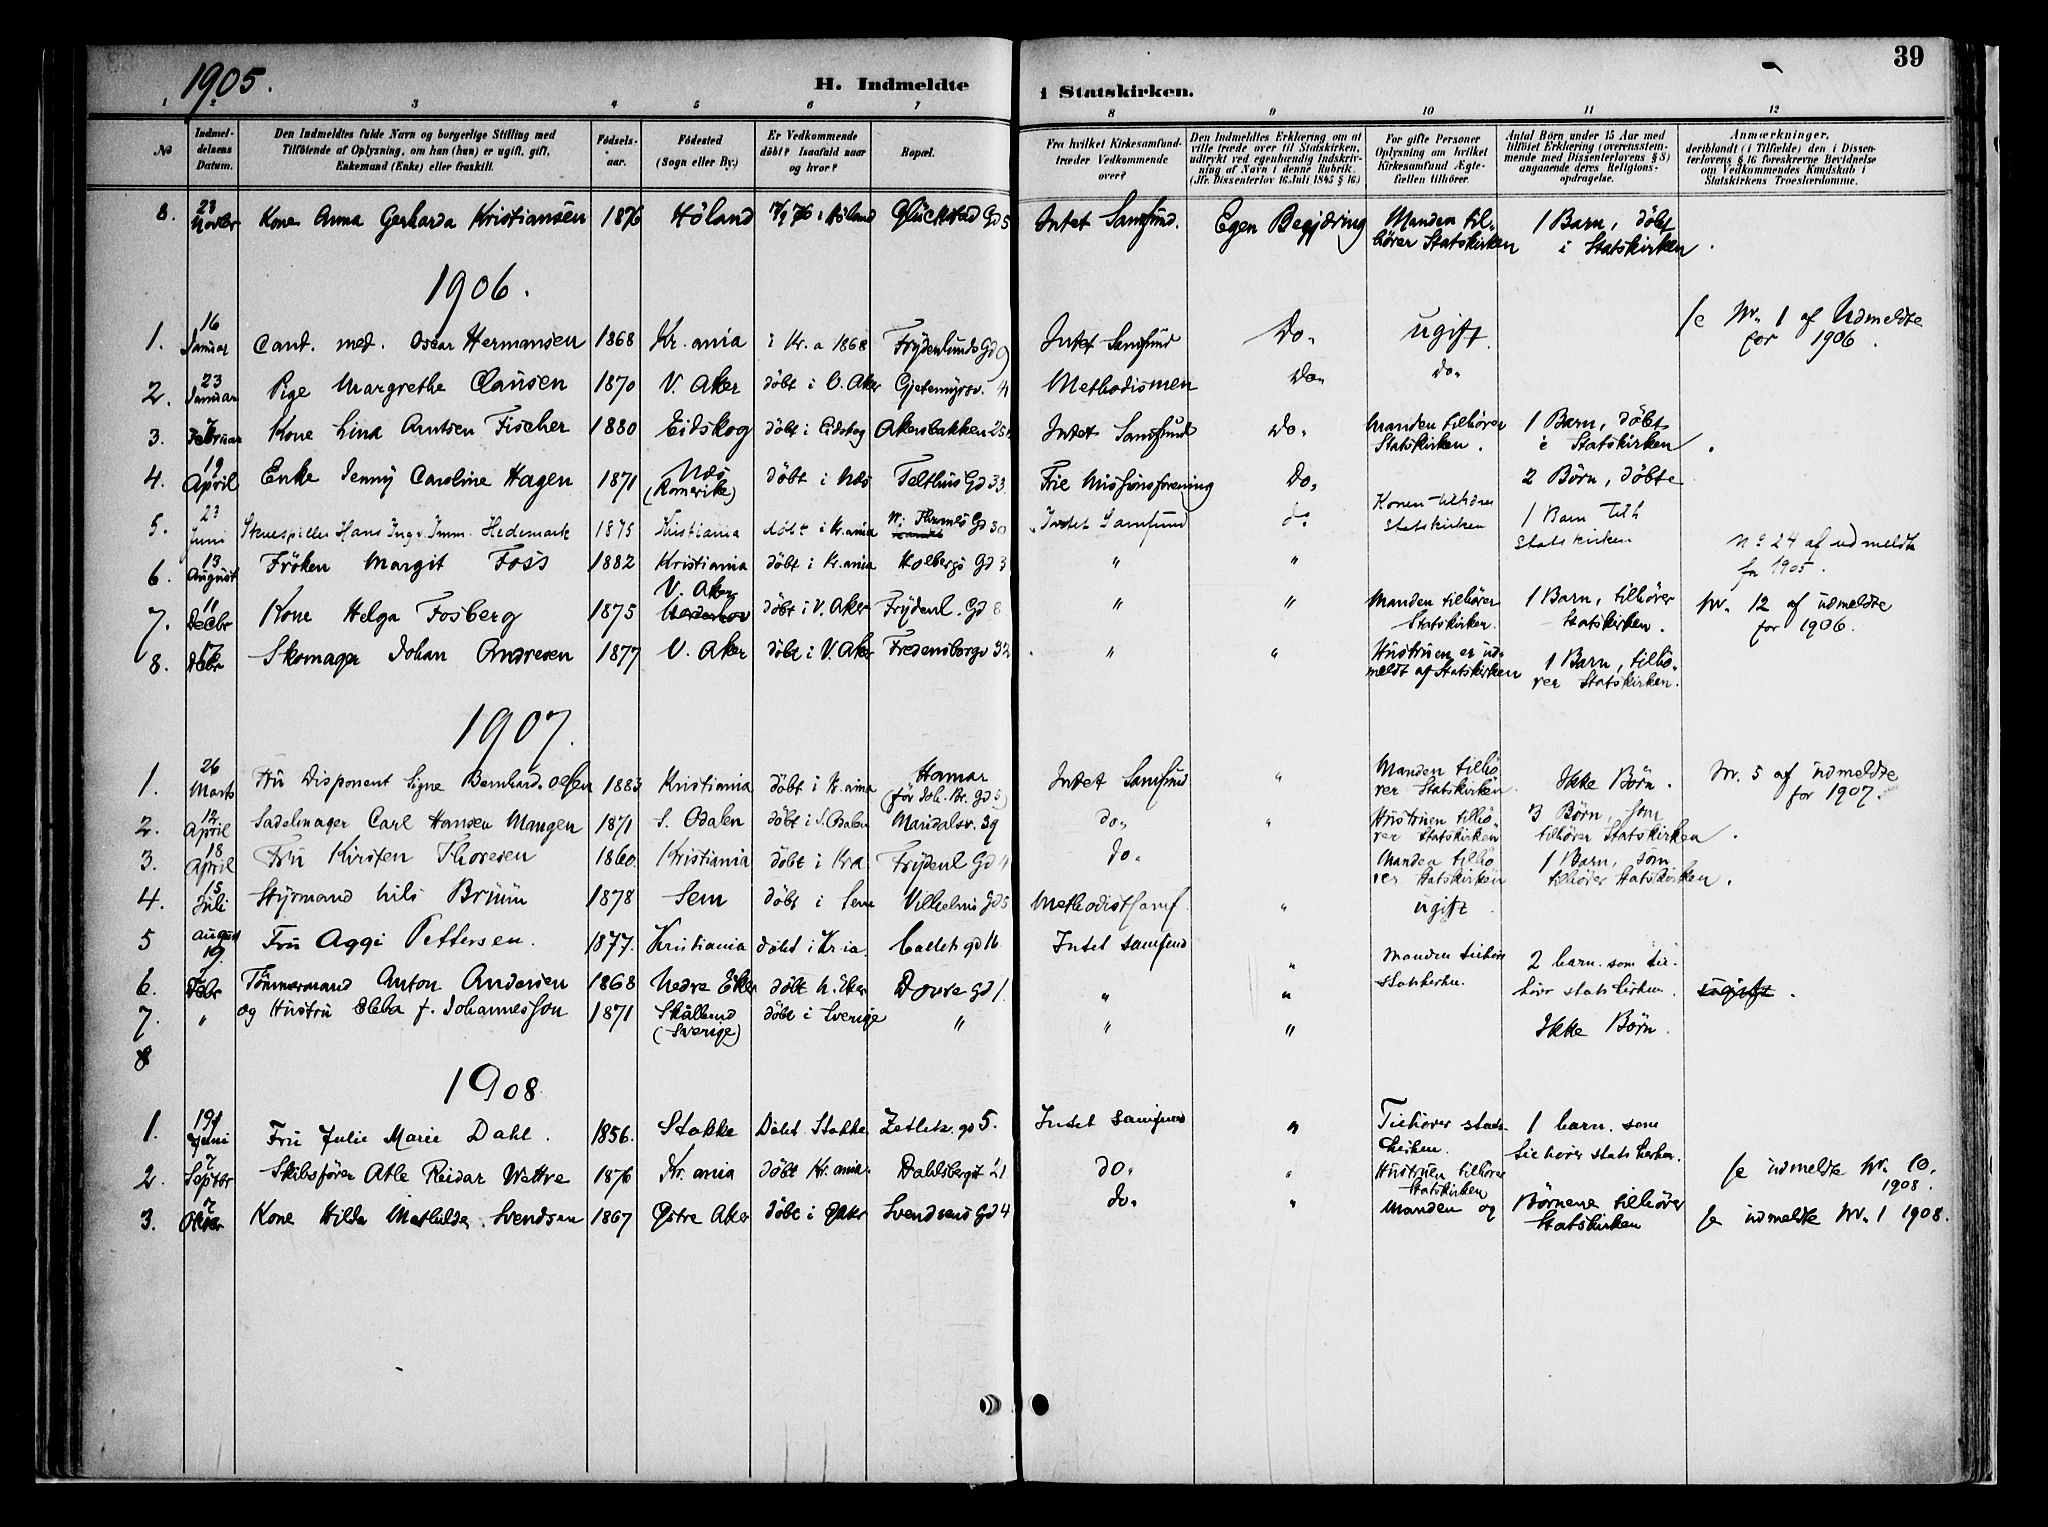 39
1905.
H. Indmeldte i Statskirken.
1 2 3 4 5 6 7 8 9 10 11 12
No
Indmel-
delsens
Datum.
Den Indmeldtes fulde Navn og borgerlige Stilling med
Tilføiende af Oplysning, om han (hun) er ugift, gift,
Enkemand (Enke) eller fraskilt.
Fødsels-
aar.
Fødested
(Sogn eller By.)
Er Vedkommende
døbt? Isaafald naar
og hvor?
Bopæl.
Fra hvilket Kirkesamfund
træder Vedkommende
over?
Den Indmeldtes Erklæring om at
ville træde over til Statskirken,
udtrykt ved egenhændig Indskriv-
ning af Navn i denne Rubrik.
(Jfr. Dissenterlov 16 Juli 1845 § 16)
For gifte Personer
Oplysning om hvilket
Kirkesamfund Ægte-
fællen tilhører.
Antal Børn under 15 Aar med
tilføiet Erklæring (overensstem-
mende med Dissenterlovens § 8)
angaaende deres Religions-
opdragelse.
Anmærkninger,
deriblandt (i Tilfælde) den i Dissen-
terlovens § 16 foreskrevne Bevidnelse
om Vedkommendes Kundskab i
Statskirkens Troesbekjendelse.
8. 23 Novbr Kone Anna Gerharda Kristiansen 1876 Höland 17/9 76 i Höland Glückstad Gd 5 Intet Samfund. Egen Begjæring Manden til-
hörer Statskirken 1 Barn, döbt
i Statskirken.
1906.
1. 16 Januar Cand. med. Oscar Hermansen 1868 Kr.ania i Kr.a 1868 Frydenlunds Gd 9 Intet Samfund Do. ugift. se Nr. 1 af Udmeldte
for 1906.
2. 23 Januar Pige Margrethe Clausen 1870 V. Aker döbt i V. Aker Gjetemyrsv. Methodismen Do. Do.
3. Februar Kone Lina Arntsen Fischer 1880 Eidskog döbt i Eidskog Akersbakken Intet Samfund Do. Manden tilhörer
Statskirken. 1 Barn, döbt
i Statskirken.
4. 19 April Enke Jenny Caroline Hagen 1871 Næs
(Romerike) döbt i Næs Telthus Gd 33 Frie Missionsforening Do. 2 Börn, döbte
5. 23 Juni Skuespiller Hans Ingv. Imm. Hedemark 1875 Kristiania döbt i Kr.ania W. Thranes Gd 30 Intet Samfund do. Konen tilhörer
Statskirken 1 Barn tilh
Statskirken
6. 13 August Fröken Margit Foss 1882 Kristiania döbt i Kr.ania Holbergs Gd 3 " " No 24 af udmeldte
for 1905.
7. 11 Decbr Kone Helga Fosberg 1875 V. Aker döbt i V. Aker Frydenl. Gd 8 " " Manden tilhörer
Statskirken. 1 Barn, tilhörer
Statskirken. Nr. 12 af udmeldte
for 1906.
8. 17 Debr Skomager Johan Andresen 1877 V. Aker döbt i V. Aker Fredensborgv 32 " " Hustruen er ud-
meldt af Statskirken 1 Barn, tilhö-
rer Statskirken.
1907.
1. 26 Marts Fru Disponent Signe Bernhard-Olsen 1883 Kristiania döbt i Kr.ania Hamar
(för Joh. Br. Gd 5) Intet Samfund " Manden tilhö-
rer Statskirken. Ikke Börn. Nr. 5 af udmeldte
for 1907.
2. 12 April Sadelmager Carl Hansen Mangen 1871 S. Odalen döbt i S. Odalen Maridalsv. 39 do. " Hustruen tilhö-
rer Statskirken 3 Börn, som
tilhörer Statskirken.
3. 18 April Fru Kirsten Thoresen 1860 Kristiania döbt i Kra Frydenl Gd 4 do. Manden tilhö-
rer Statskirken 1 Barn, som
tilhörer Statskirken.
4. 15 Juli Styrmand Nils Bruun 1878 Sem döbt i Sem Vilhelms Gd 5 Methodistsamf. " ugift.
5 August 19. Fru Aggi Pettersen. 1877. Kristiania döbt i Kr.ia. Colletts gd 16 Intet samfund " Manden tilhörer
statskirken. 2 barn. som til-
hører statskirken.
6. 7 Debr Tömmermand Anton Andersen 1868 Nedre Eker döbt N. Eker Dovre gd 1. " " ugift.
7. " og Hustru Ebba f. Johannesson 1871 Skållerud
(Sverige) döbt i Sverige " " " Ikke Börn.
8
1908.
1. 19/ Juni Fru Julie Marie Dahl. 1856. Stokke Döbt Stokke Zetlitz gd 5. Intet samfund " Tilhører stats-
kirken. 1 barn. som
tilhører statskirken.
2. 7 Septbr Skibsförer Atle Reidar Wettre 1876 Kr.ania döbt Kr.ania. Dahlsbergst 21 do. " Hustruen tilhörer
Statskirken se udmeldte Nr. 10.
1908.
3. 7 Oktbr Kone Hilda Mathilda Svendsen 1867 Østre Aker döbt i ØAker Svendsens Gd 4 do. " Manden og Börnene tilhörer
Statskirken se udmeldte Nr. 1 1908.